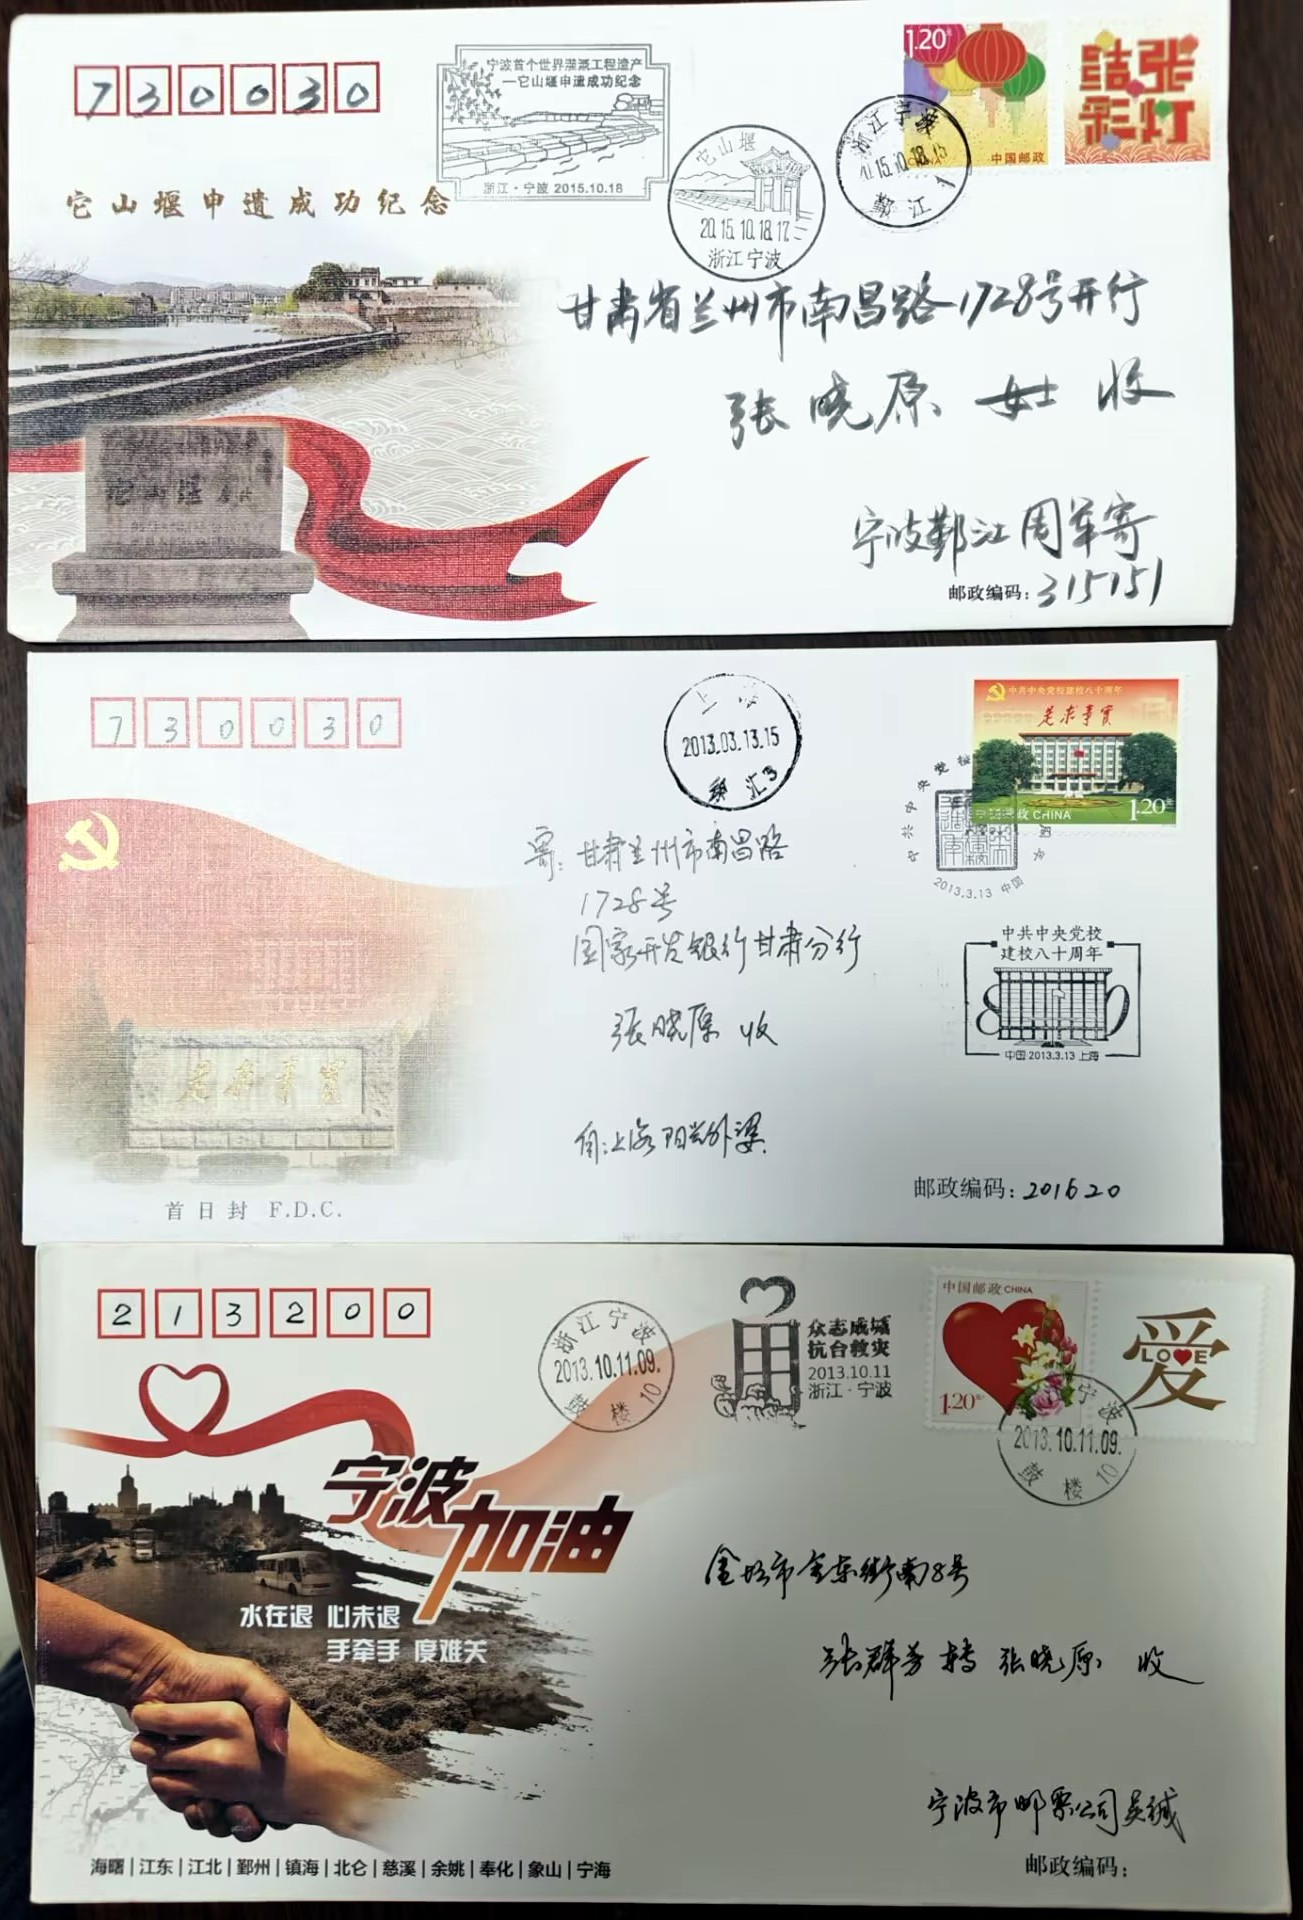 730030
宁波首个世界灌溉工程遗产
—它山堰申遗成功纪念
浙江·宁波 2015.10.18
它山堰
2015.10.18.17
浙江宁波
浙江宁波
2015.10.18.15
鄞江 1
1.20元
中国邮政
张灯
结彩
它山堰申遗成功纪念
它山堰
甘肃省兰州市南昌路1728号开行
张晓原 女士 收
宁波鄞江周军寄
邮政编码：315151
730030
上海
2013.03.13.15
汇3
中共中央党校建校八十周年
实事求是
中国邮政 CHINA
1.20元
中共中央党校
2013.3.13 中国
中共中央党校
建校八十周年
80
中国 2013.3.13 上海
寄：甘肃兰州市南昌路
1728号
国家开发银行甘肃分行
张晓原 收
实事求是
首日封 F.D.C.
邮政编码：201620
213200
浙江宁波
2013.10.11.09.
鼓楼 10
众志成城
抗台救灾
2013.10.11
浙江·宁波
中国邮政 CHINA
1.20元
爱
LOVE
宁波
2013.10.11.09.
鼓楼 10
宁波加油
水在退 心未退
手牵手 度难关
金坛市金东街南8号
张群芳转 张晓原 收
宁波市邮票公司吴诚
邮政编码：
海曙|江东|江北|鄞州|镇海|北仑|慈溪|余姚|奉化|象山|宁海